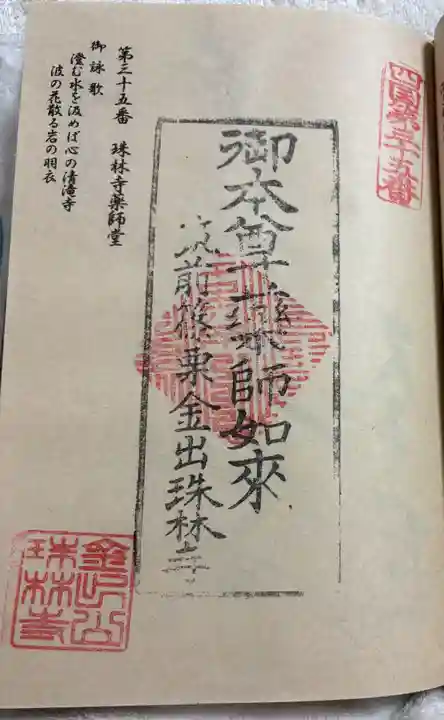 四国第三十五番
第三十五番 珠林寺薬師堂
御詠歌
澄む水を汲めば心の清滝寺
波の花散る岩の羽衣
御本尊藥師如來
筑前篠栗金出珠林寺
金出山
珠林寺